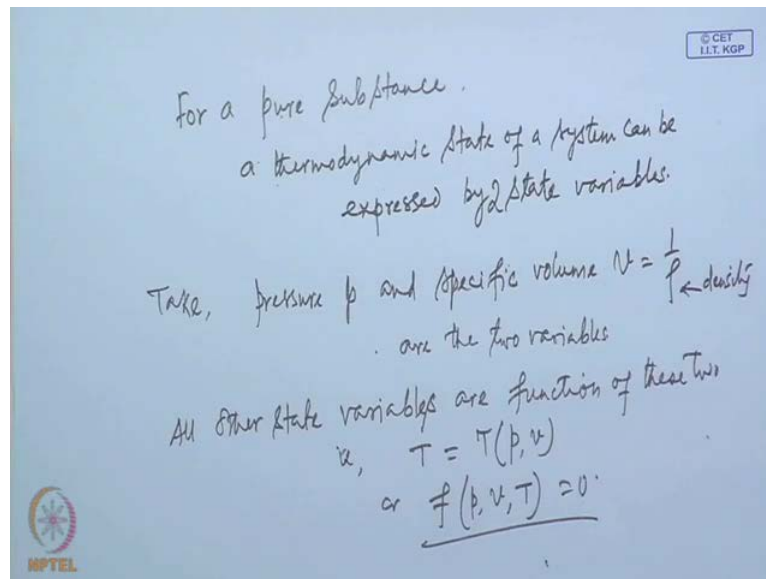 © CET
I.I.T. KGP
For a pure substance.
a thermodynamic state of a system can be
expressed by 2 state variables.
Take, pressure p and specific volume v = 1/ρ ← density
are the two variables
All other state variables are function of these two
ie, T = T(p, v)
or f(p, v, T) = 0.
NPTEL